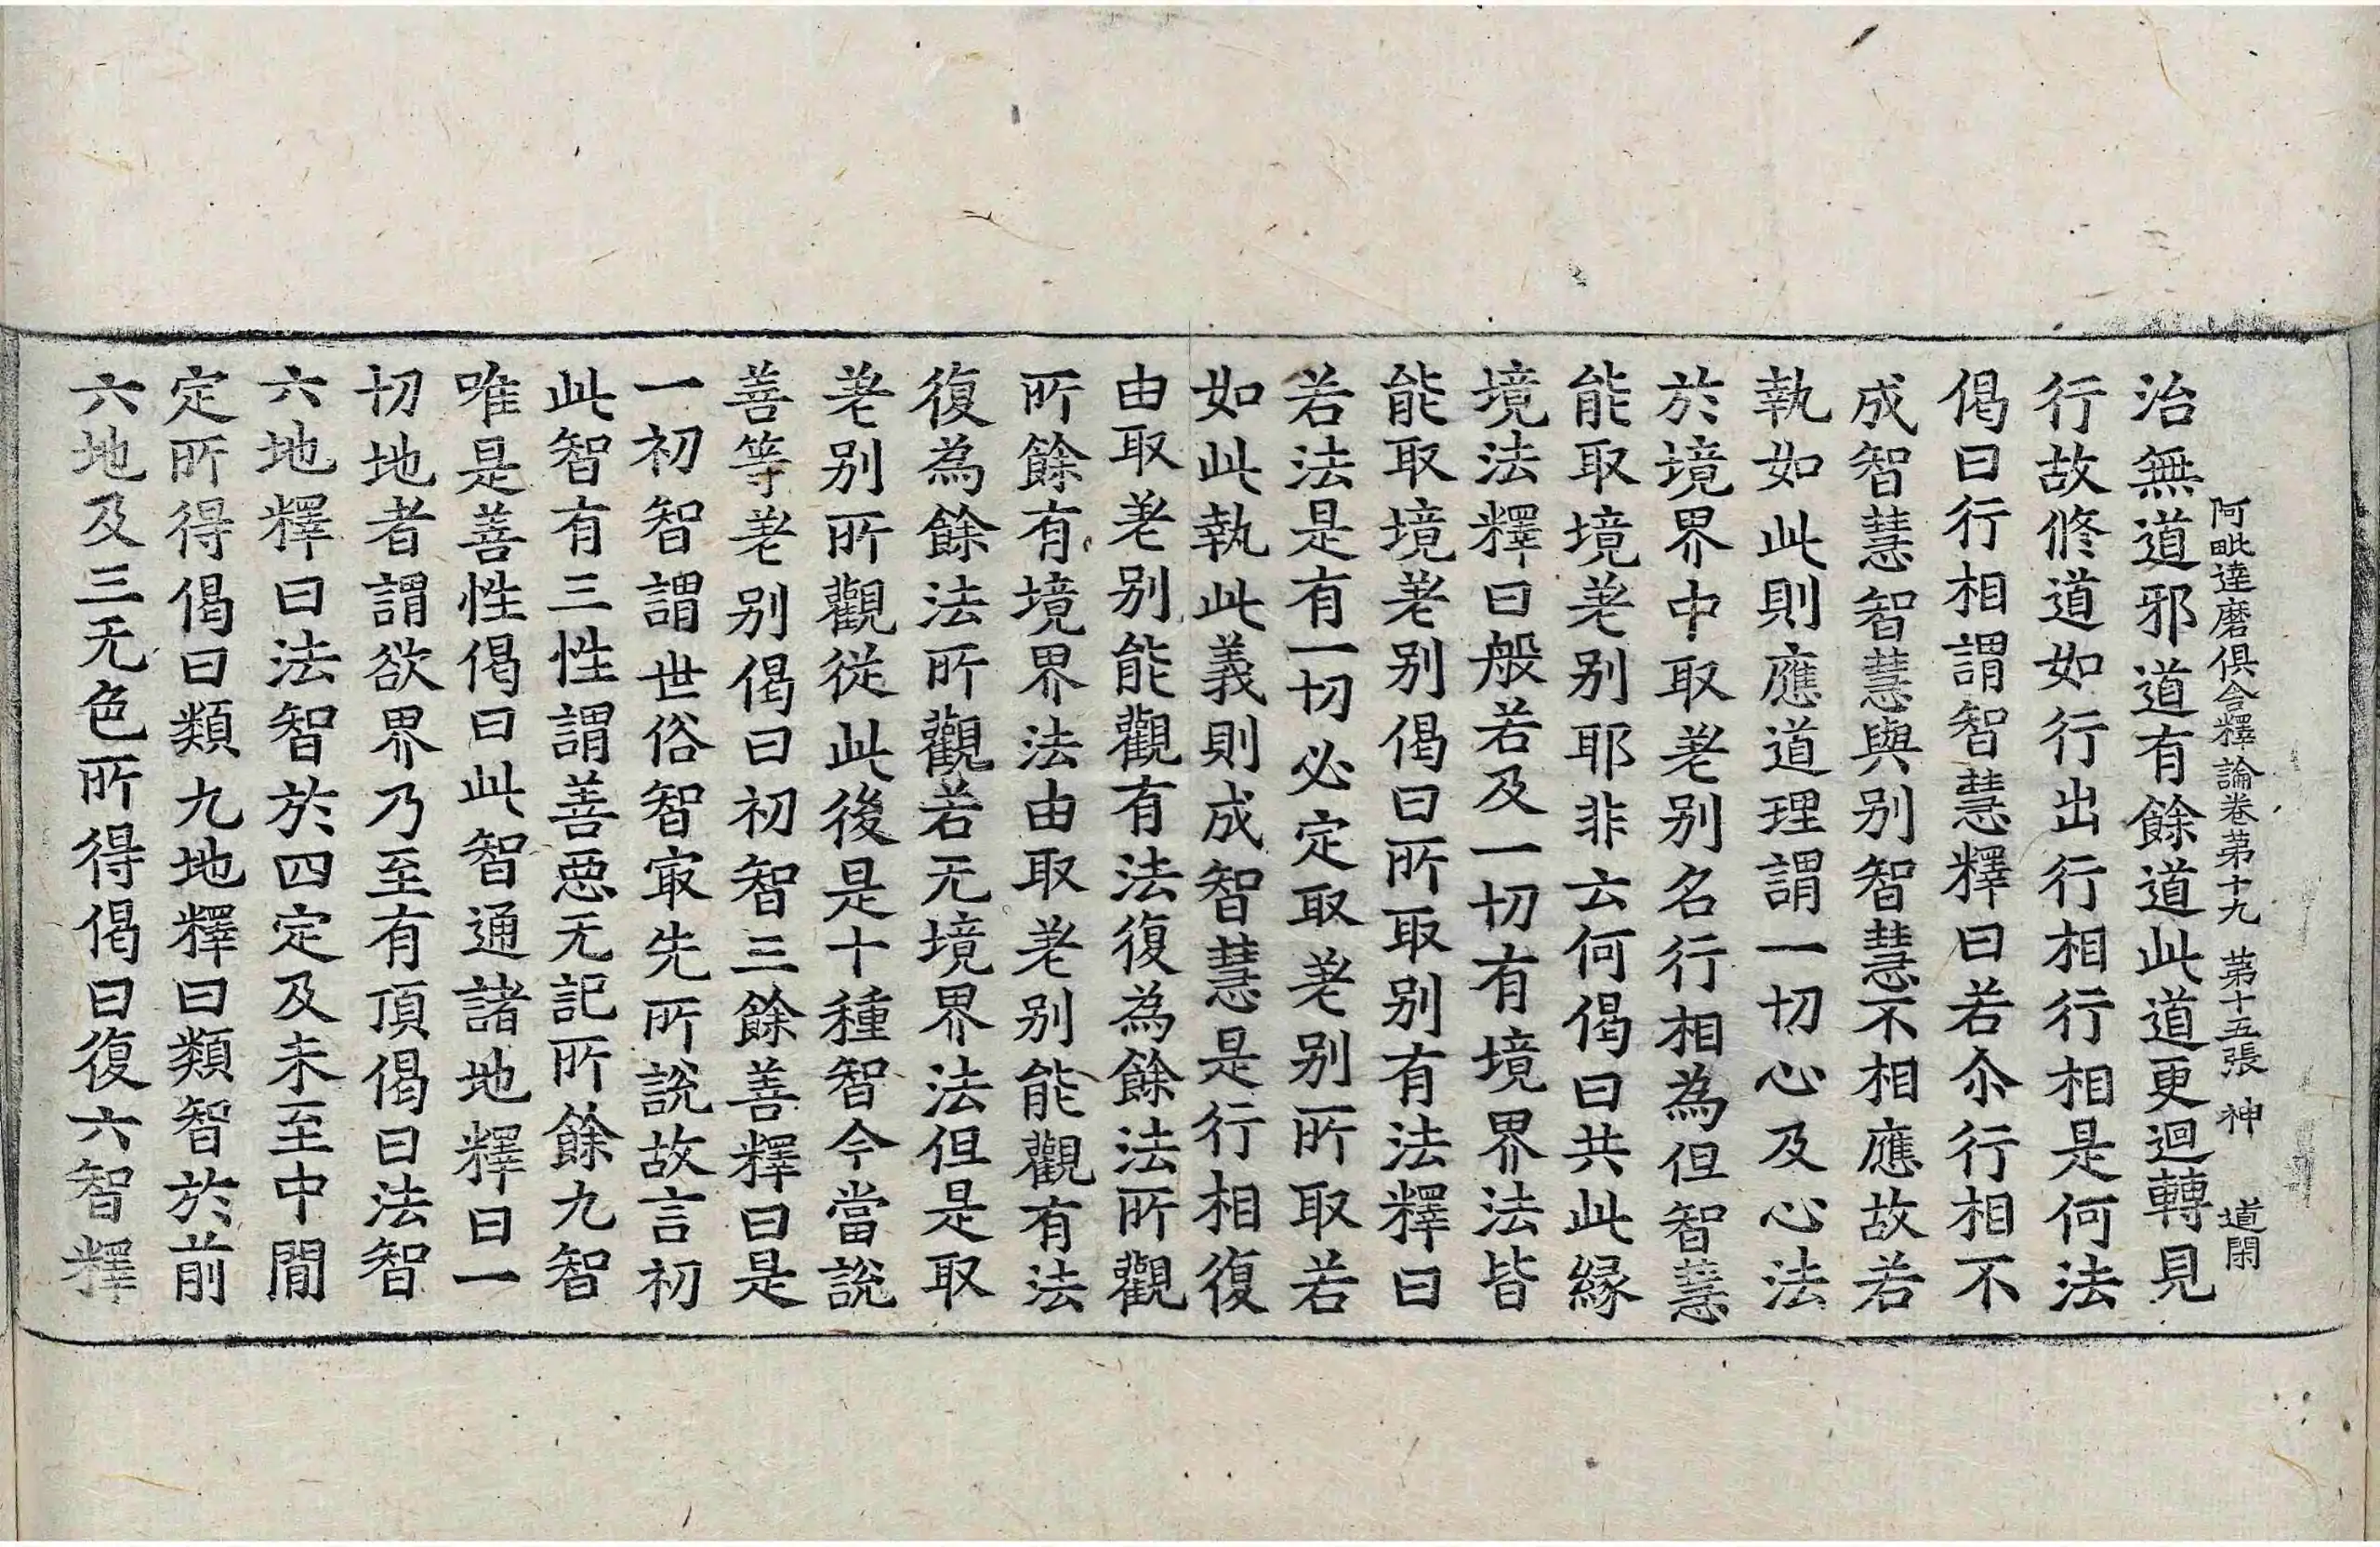 阿毗達磨俱舍釋論卷第十九 第十五張 神 道閑
治無道邪道有餘道此道更迴轉見
行故修道如行出行相行相是何法
偈曰行相謂智慧釋曰若尒行相不
成智慧智慧與別智慧不相應故若
執如此則應道理謂一切心及心法
於境界中取差別名行相為但智慧
能取境差別耶非云何偈曰共此緣
境法釋曰般若及一切有境界法皆
能取境差別偈曰所取別有法釋曰
若法是有一切必定取差別所取若
如此執此義則成智慧是行相復
由取差別能觀有法復為餘法所觀
所餘有境界法由取差別能觀有法
復為餘法所觀若无境界法但是取
差別所觀從此後是十種智今當說
善等差別偈曰初智三餘善釋曰是
一初智謂世俗智㝡先所說故言初
此智有三性謂善惡无記所餘九智
唯是善性偈曰此智通諸地釋曰一
切地者謂欲界乃至有頂偈曰法智
六地釋曰法智於四定及未至中間
定所得偈曰類九地釋曰類智於前
六地及三无色所得偈曰復六智釋